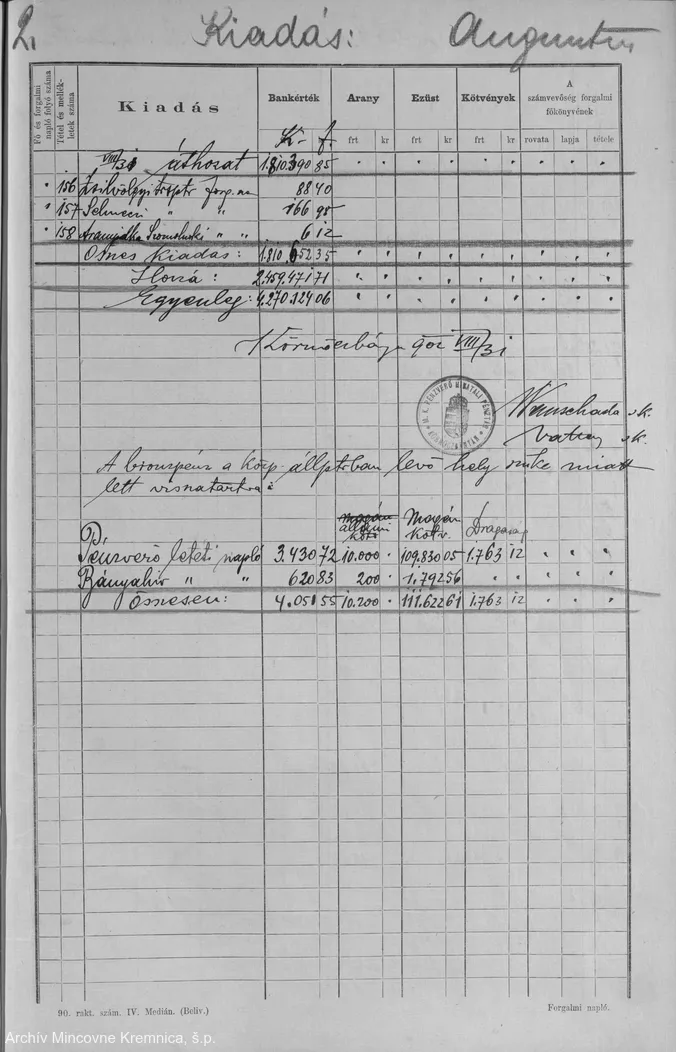 2. Kiadás: Augusztus
Fő és forgalmi napló folyó száma
Tétel és mellékletek száma
Kiadás
Bankérték Arany Ezüst Kötvények
A számvevőség forgalmi főkönyvének
K. f. frt kr frt kr frt kr rovata lapja tétele
VIII/31 áthozat 1.810.390 85
" 156 Zsilvölgyi 88 40
" 157 Selmeczi " " 166 98
" 158 Aranyidka Szomolnoki " " 6 12
Összes Kiadás: 1.810.652 35
Hozzá: 2.459.471 71
Egyenleg: 4.270.124 06
Körmöczbánya 902 VIII/31
A bronzpénz a közp. állptrban levő hely szüke miatt
lett visszatartva:
állami kötv Magán kötv. Drágaság
P.
Pénzverő letéti napló 3.430 72 10.000 " 109.830 05 1.763 12
Bányahiv " " 620 83 200 " 1.792 56
Összesen: 4.051 55 10.200 " 111.622 61 1.763 12
90. rakt. szám. IV. Medián. (Beliv.) Forgalmi napló.
Archív Mincovne Kremnica, š.p.